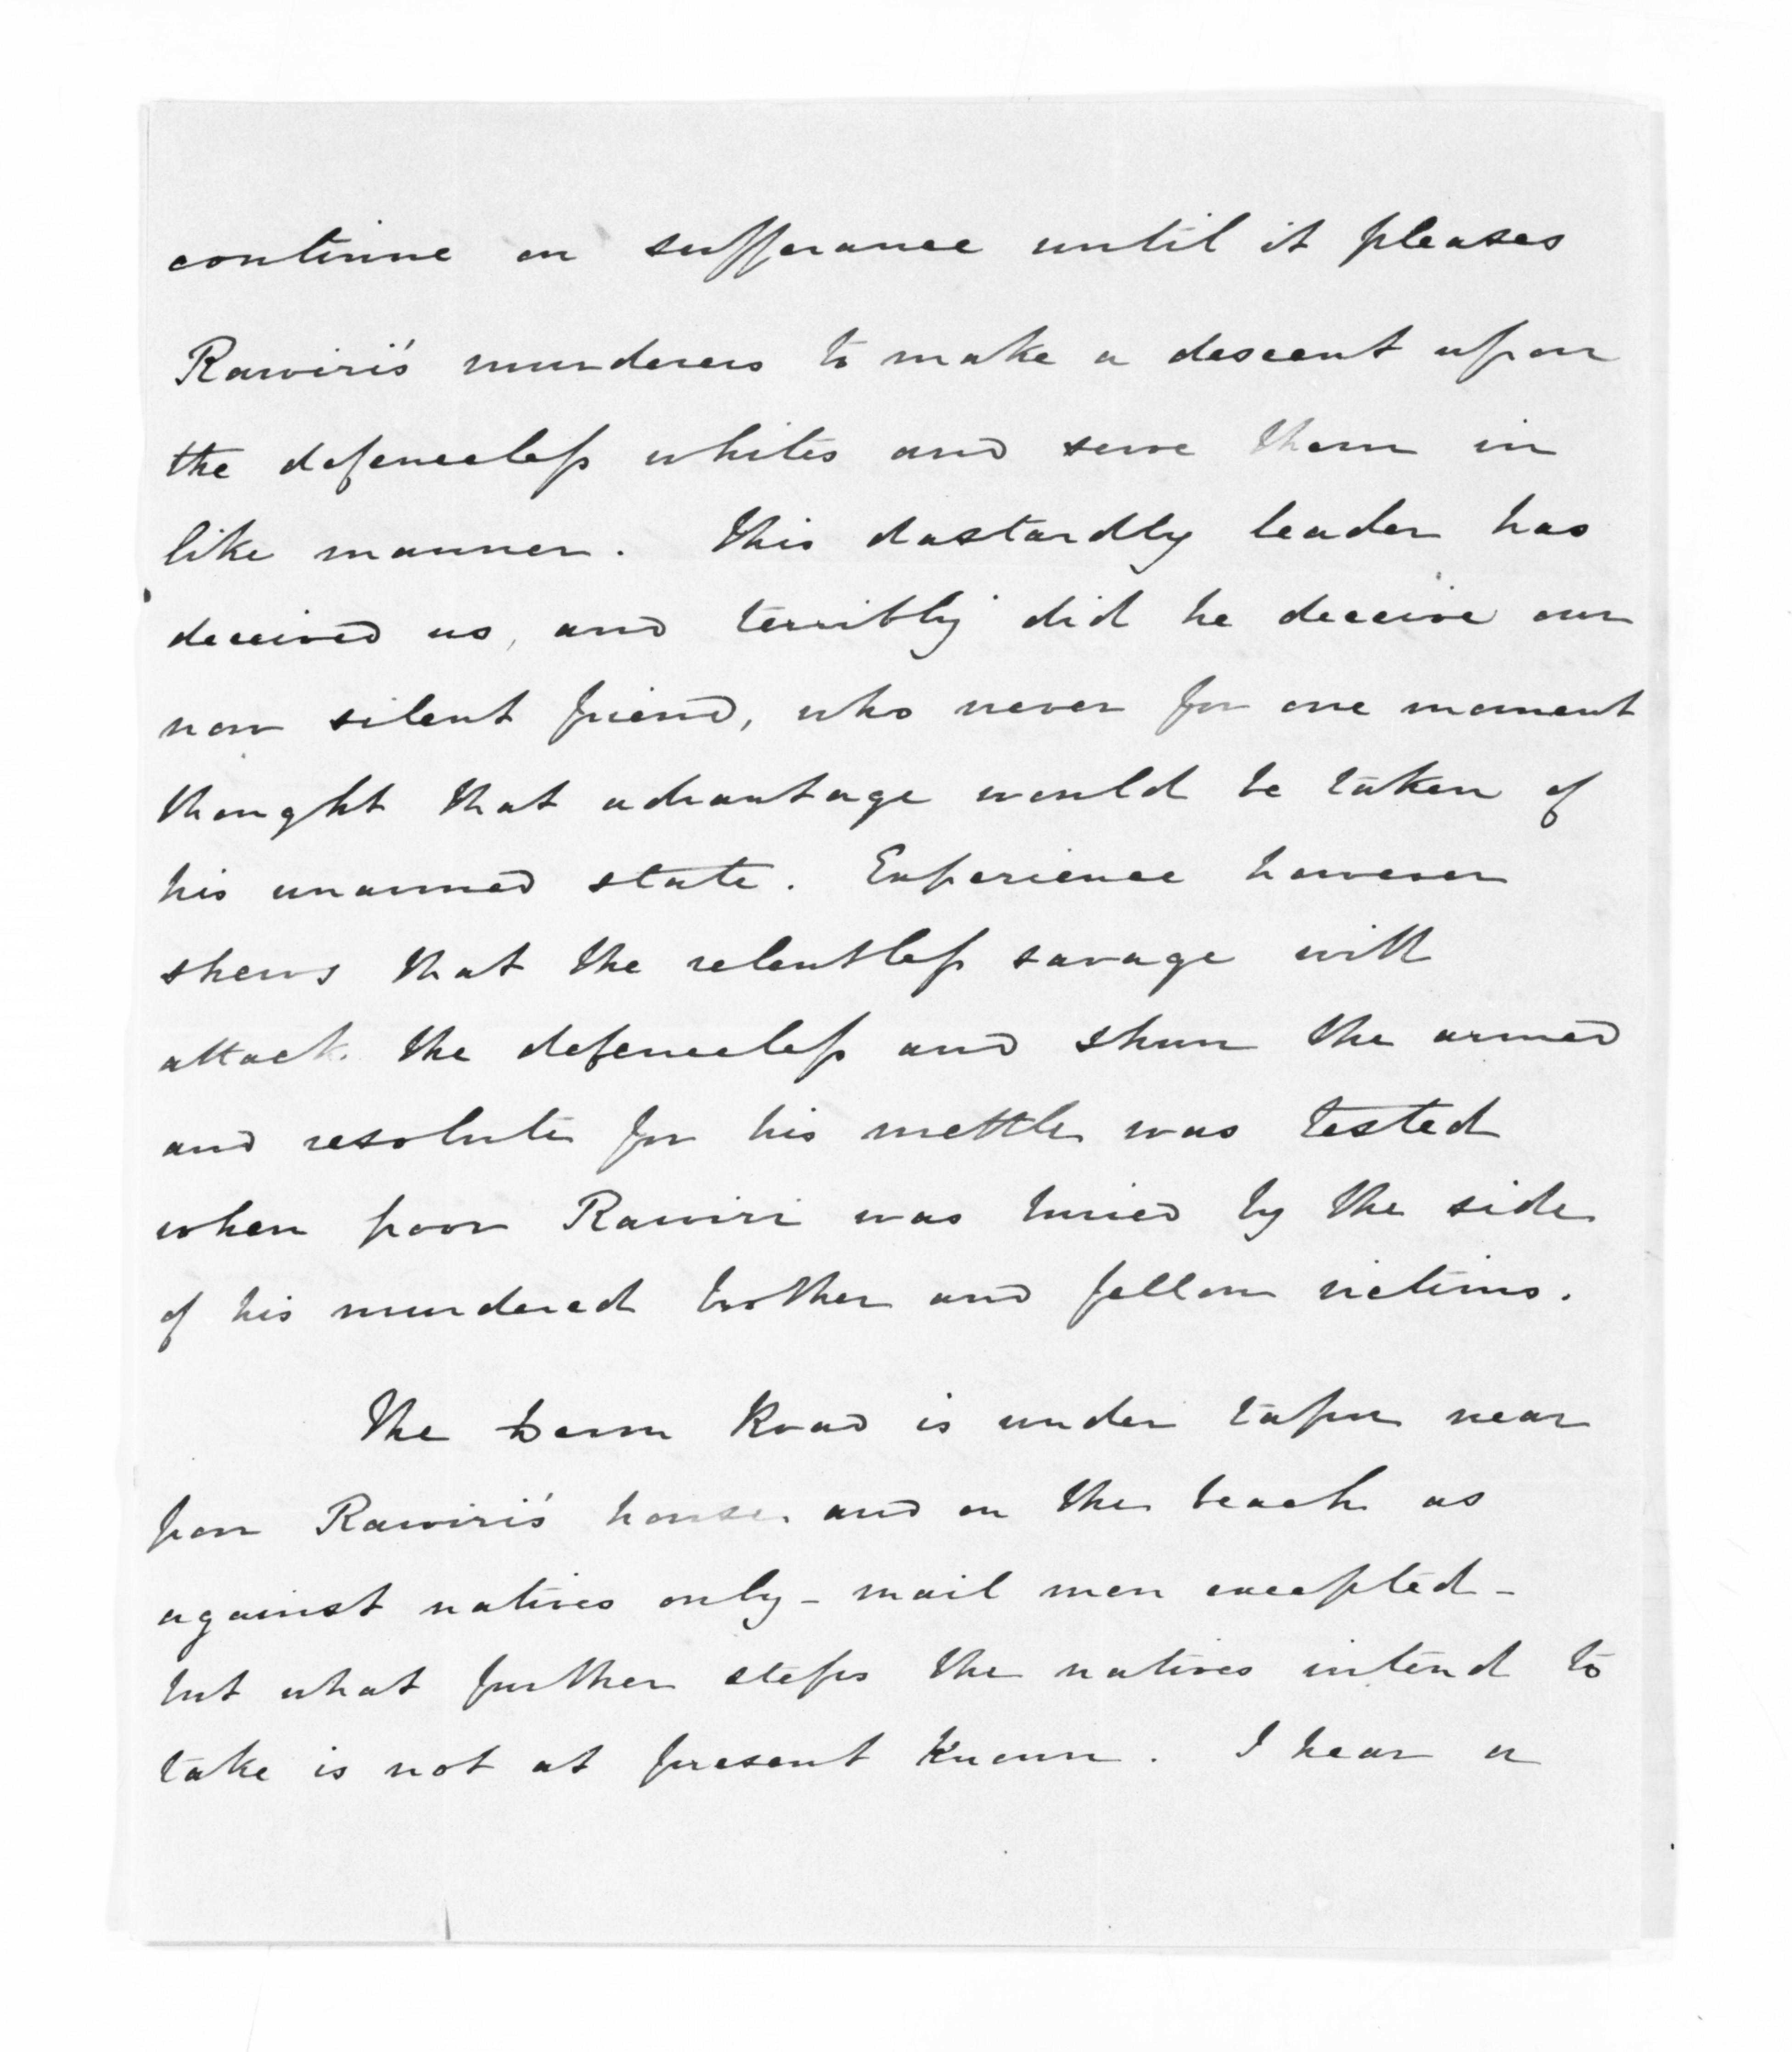 continue on sufferance until it pleases
Rawiri's murderers to make a descent upon
the defenceless whites and serve them in
like manner. This dastardly leader has
deceived us, and terribly did he deceive our
now silent friend, who never for one moment
thought that advantage would be taken of
his unarmed state. Experience however
shews that the relentless savage will
attack the defenceless and shun the armed
and resolute for his mettle was tested
when poor Rawiri was buried by the side
of his murdered brother and fellow victims.
The Devon Road is under tapu near
poor Rawiri's house and on the beach as
against natives only - mail men excepted -
but what further steps the natives intend to
take is not at present known. I hear a